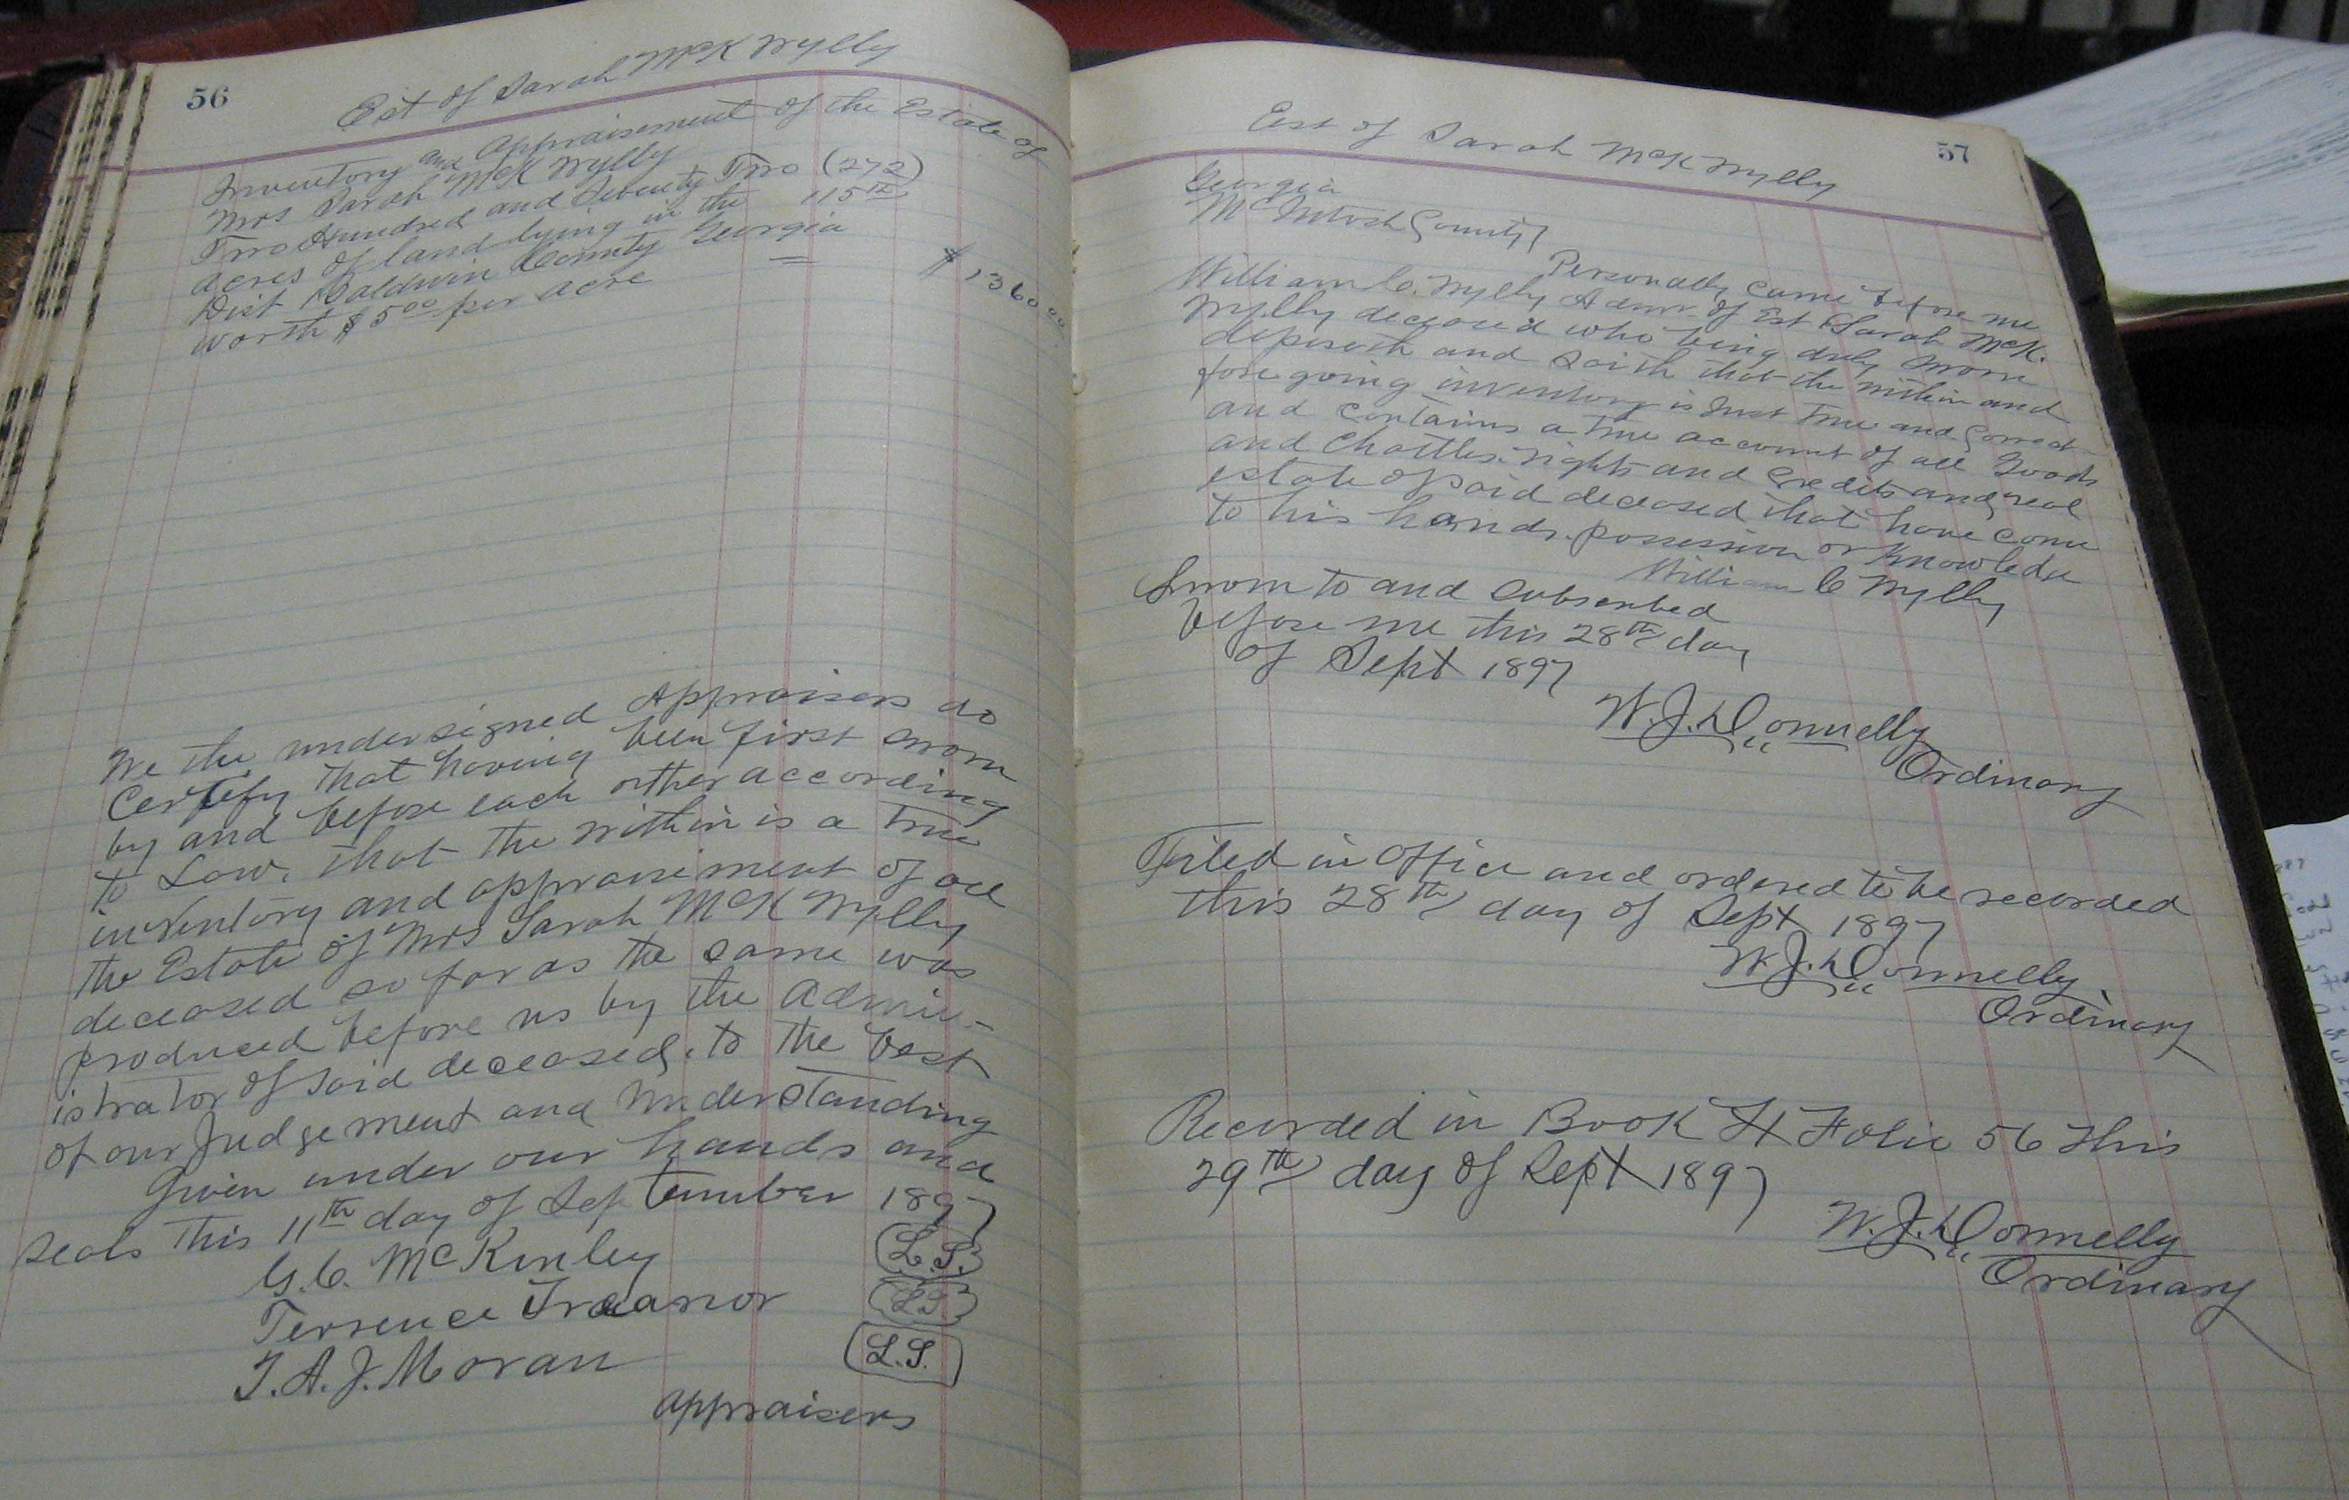 56
Est of Sarah McK Wylly
Inventory and Appraisement of the Estate of
Mrs Sarah McK Wylly
Two Hundred and Seventy Two (272)
acres of land lying in the 115th
Dist Baldwin County Georgia
worth $5.00 per acre = $1360 00
We the undersigned Appraisers do
certify that having been first sworn
by and before each other according
to Law, that the within is a true
inventory and appraisement of all
the Estate of Mrs Sarah McK Wylly
deceased so far as the same was
produced before us by the admin-
istrator of said deceased, to the best
of our Judgement and understanding
Given under our hands and
seals this 11th day of September 1897
G. C. McKinley (L.S.)
Terrence Treanor (L.S.)
T. A. J. Moran (L.S.)
appraisers
57
Est of Sarah McK Wylly
Georgia
McIntosh County}
Personally came before me
William C. Wylly Admr. of Est Sarah McK.
Wylly deceased who being duly sworn
deposeth and saith that the within and
foregoing inventory is Just True and Correct
and contains a true account of all Goods
and Chattles. rights and Credits and real
estate of said deceased that have come
to his hands. possession or knowledge
William C Wylly
Sworn to and subscribed
before me this 28th day
of Sept 1897
W. J. Donnelly
Ordinary
Filed in Office and ordered to be recorded
this 28th day of Sept 1897
W. J. Donnelly
Ordinary
Recorded in Book H Folio 56 this
29th day of Sept 1897
W. J. Donnelly
Ordinary